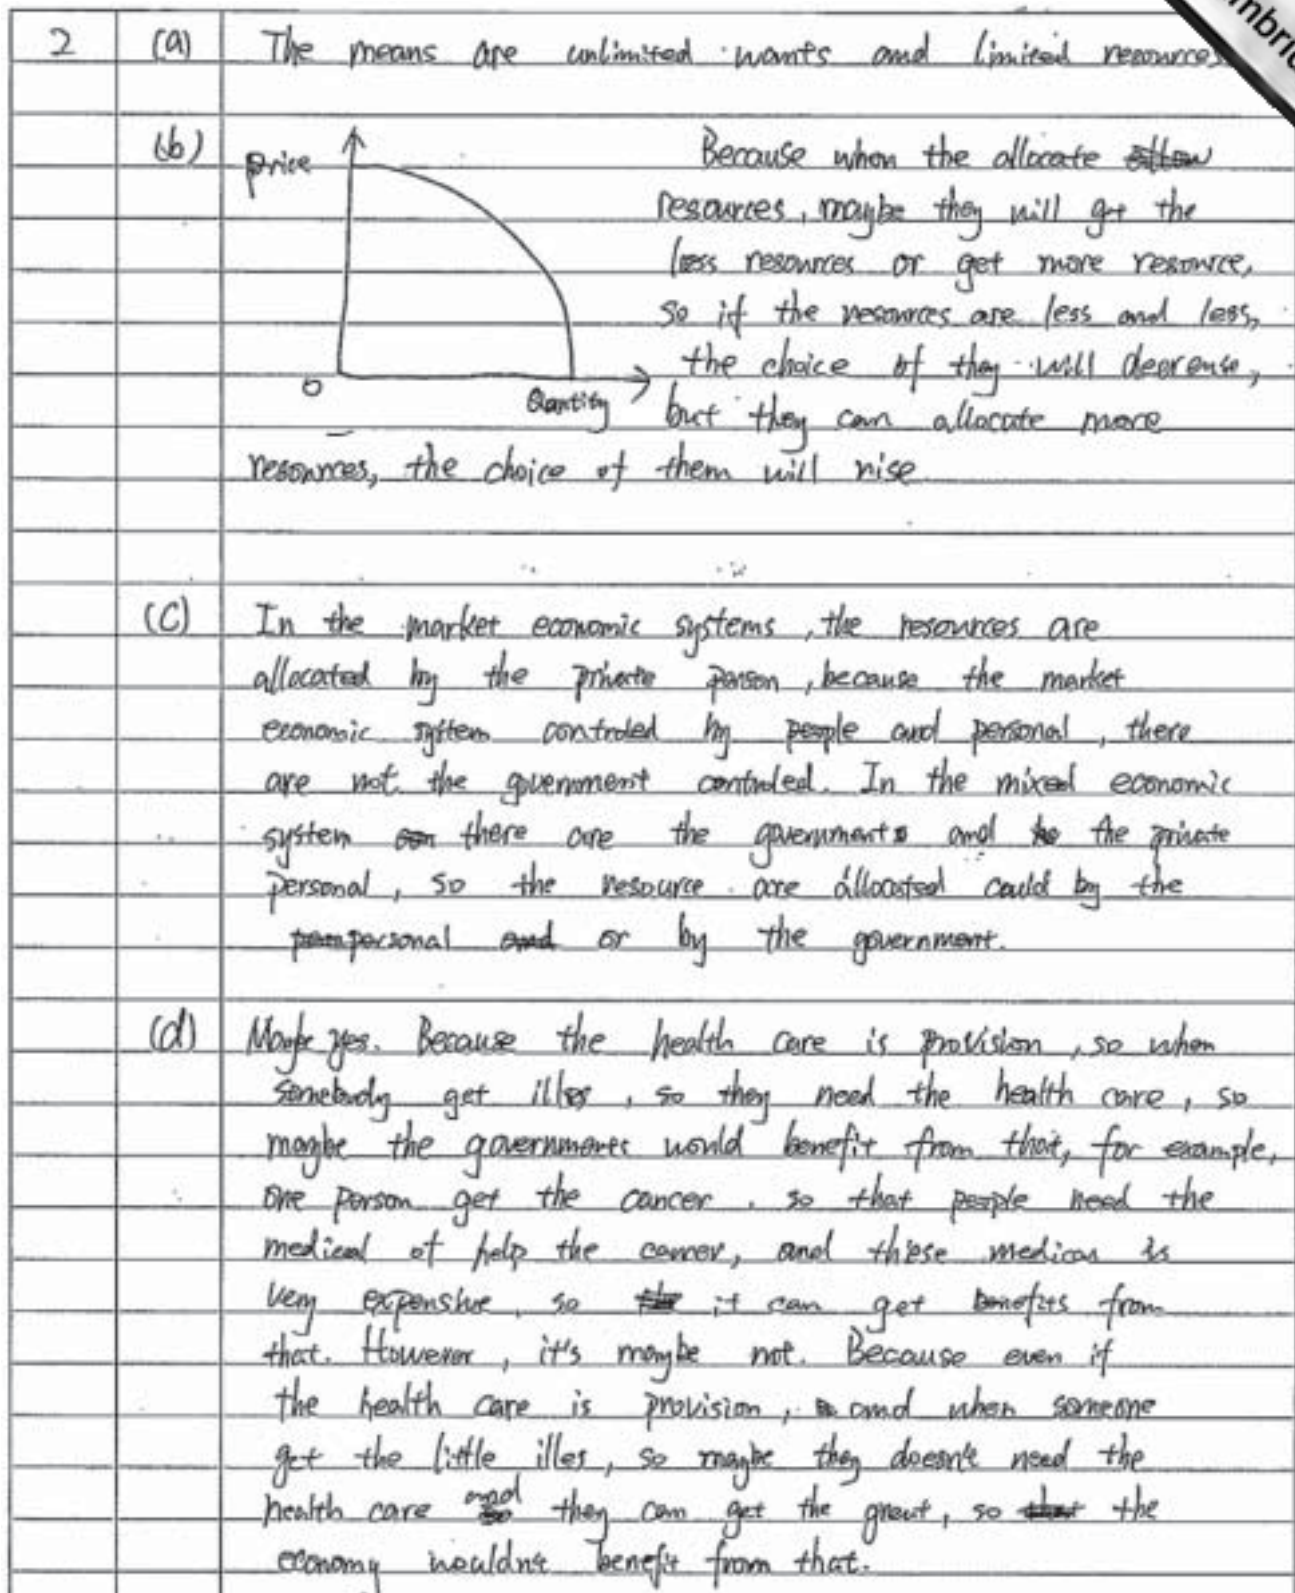 2 (a) The means are unlimited wants and limited resources
mbrid
(b) price Because when the allocate
resources, maybe they will get the
less resources or get more resource,
so if the resources are less and less,
the choice of they will decrease,
0 Quantity but they can allocate more
resources, the choice of them will rise
(c) In the market economic systems, the resources are
allocated by the private person, because the market
economic system controled by people and personal, there
are not the government controled. In the mixed economic
system there are the governments and the private
personal, so the resource are allocated could by the
personal or by the government.
(d) Maybe yes. Because the health care is provision, so when
somebody get illes, so they need the health care, so
maybe the governments would benefit from that, for example,
one person get the cancer, so that people need the
medical of help the cancer, and these medican is
very expensive, so it can get benefits from
that. However, it's maybe not. Because even if
the health care is provision, and when someone
get the little illes, so maybe they doesn't need the
health care and they can get the great, so the
economy wouldn't benefit from that.